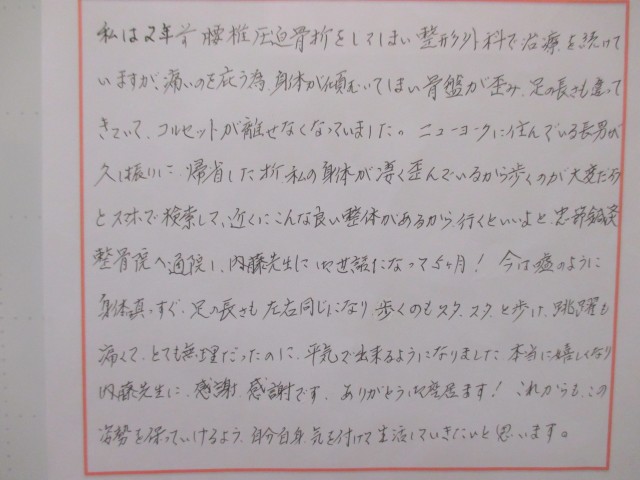 私は2年前腰椎圧迫骨折をしてしまい整形外科で治療を続けて
いますが、痛いのを庇う為、身体が傾むいてしまい骨盤が歪み、足の長さも違って
きていて、コルセットが離せなくなっていました。ニューヨークに住んでいる長男が
久し振りに帰省した折私の身体が凄く歪んでいるから歩くのが大変だろう
とスマホで検索して、近くにこんな良い整体があるから、行くといいよと、忠節鍼灸
整骨院へ通院し、内藤先生に御世話になって5ヶ月！今は嘘のように
身体真っすぐ、足の長さも左右同じになり、歩くのもスタ、スタ、と歩け、跳躍も
痛くて、とても無理だったのに、平気で出来るようになりました 本当に嬉しくなり
内藤先生に、感謝、感謝です、ありがとう御座居ます！これからも、この
姿勢を保っていけるよう、自分自身、気を付けて生活していきたいと思います。